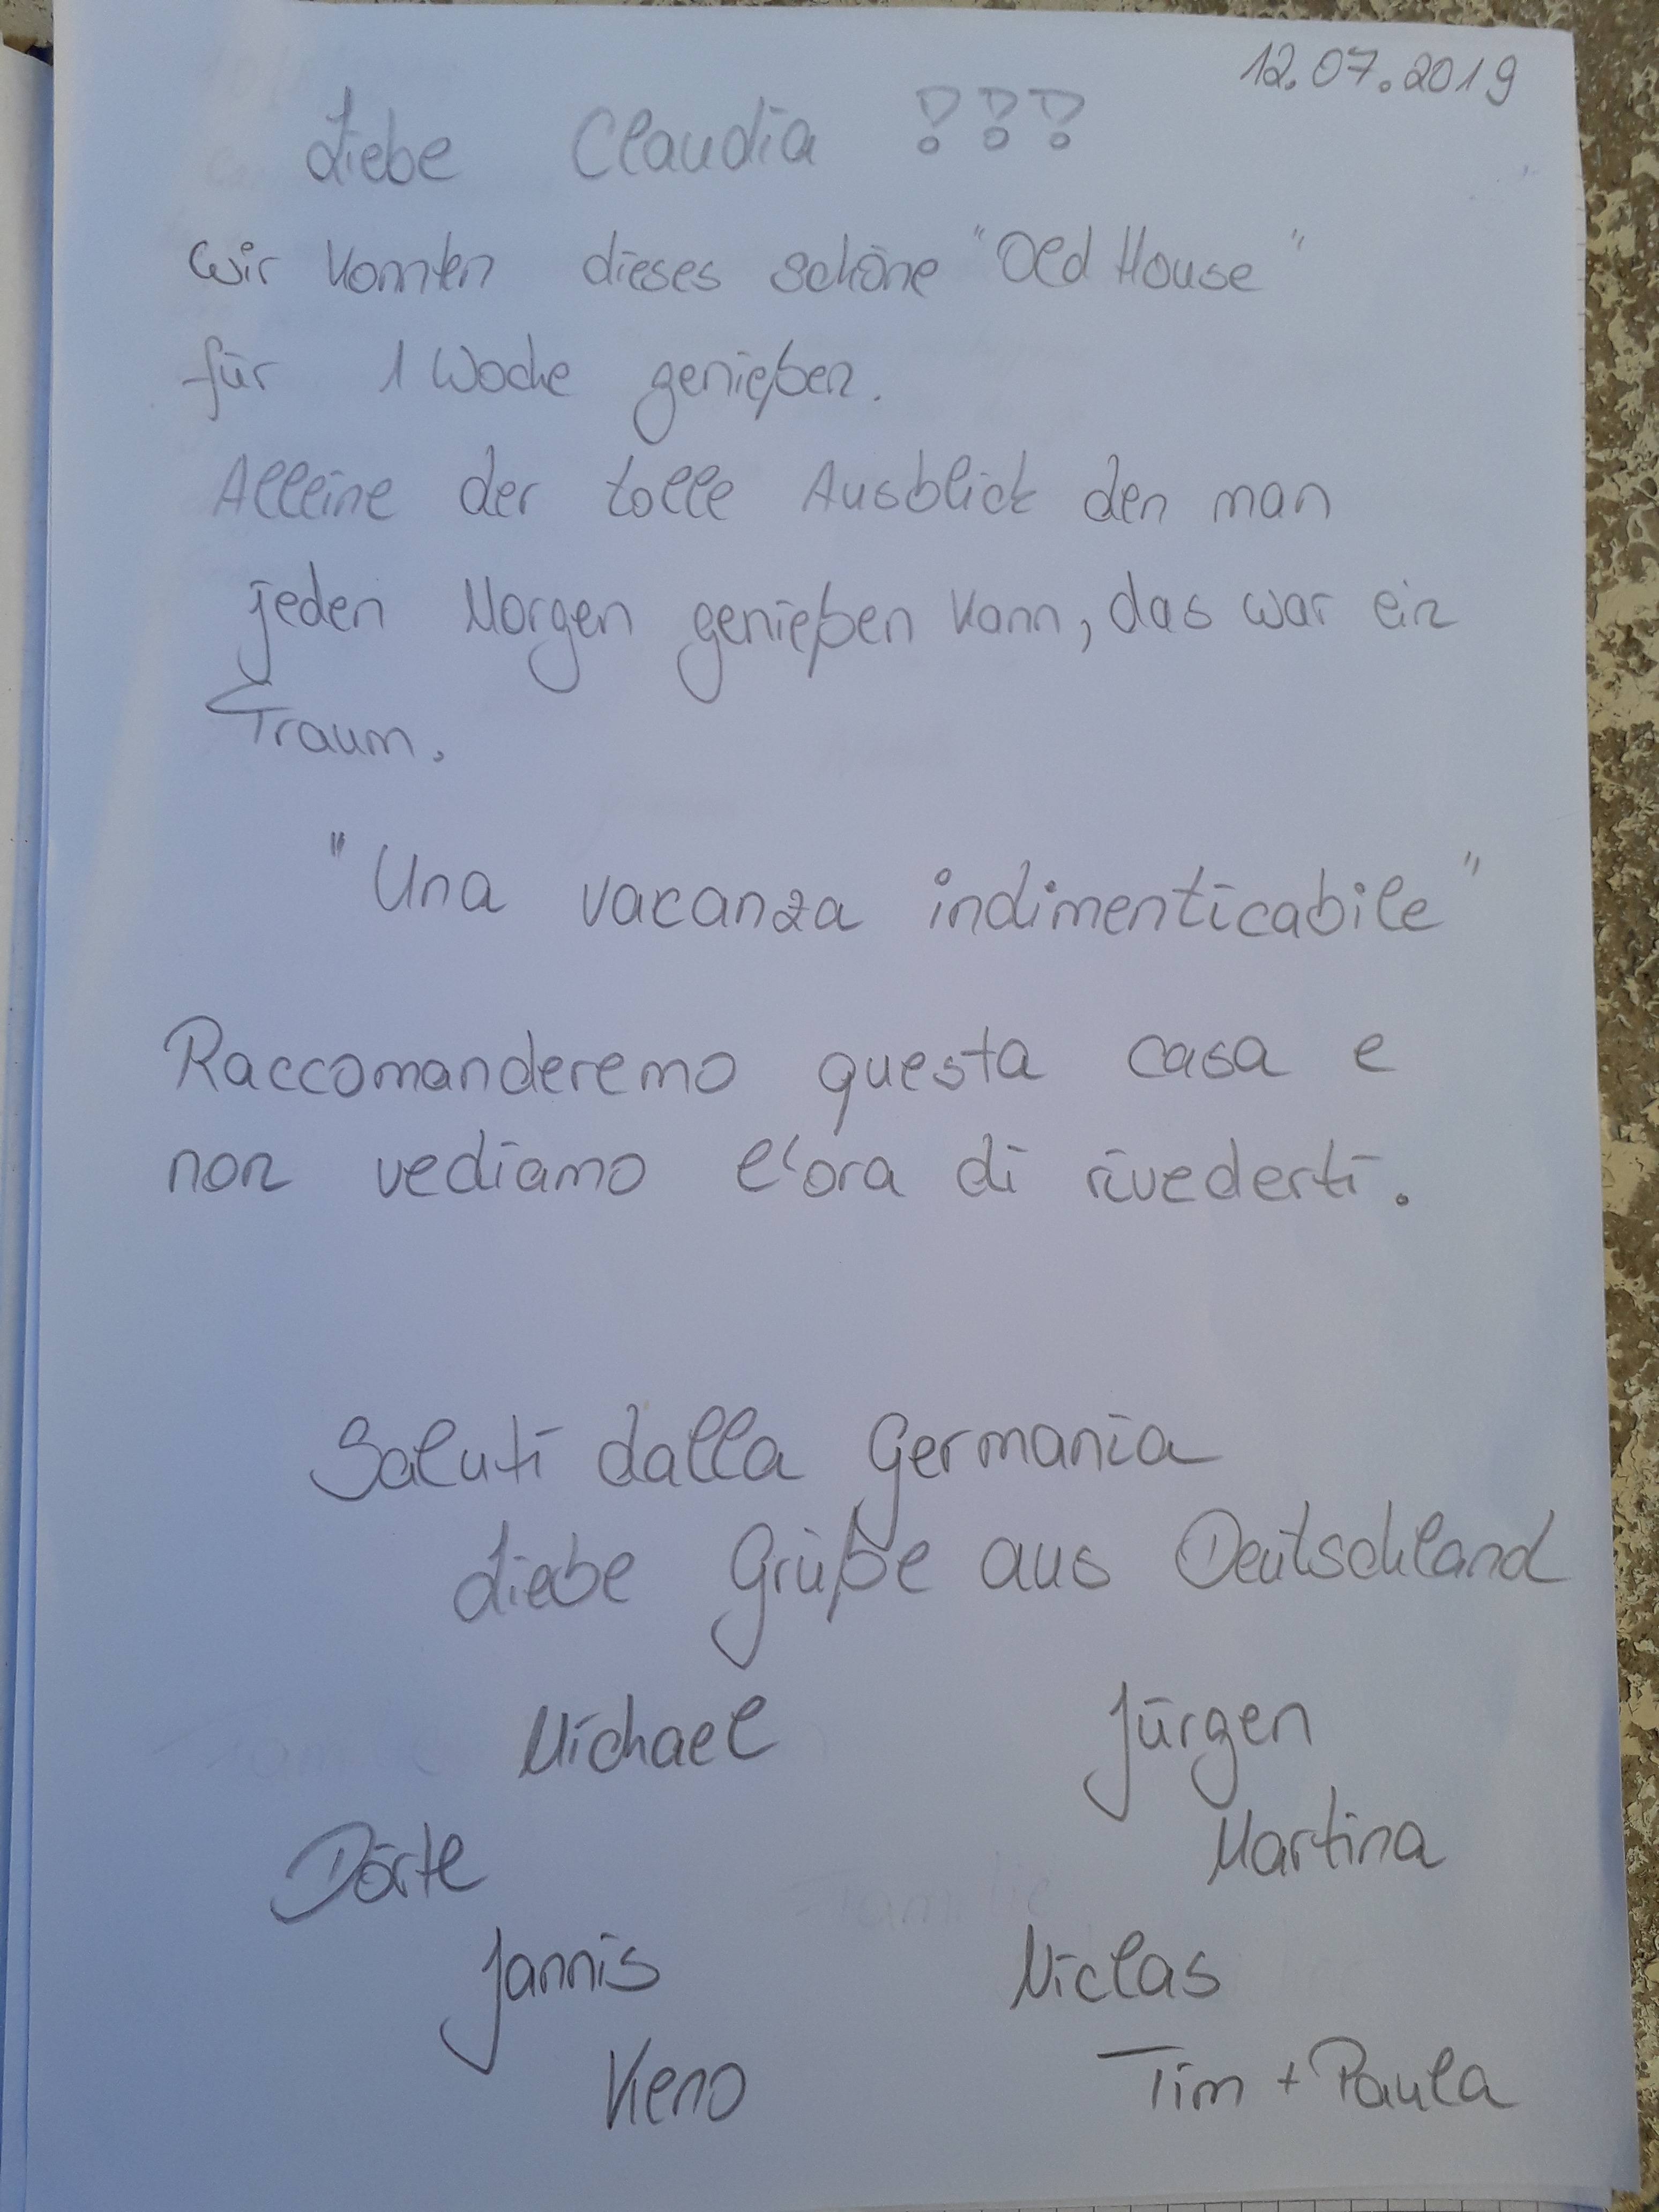 12.07.2019
Liebe Claudia !!!
wir konnten dieses schöne "Old House"
für 1 Woche genießen.
Alleine der tolle Ausblick den man
jeden Morgen genießen kann, das war ein
Traum.
"Una vacanza indimenticabile"
Raccomanderemo questa casa e
non vediamo l'ora di rivederti.
Saluti dalla Germania
Liebe Grüße aus Deutschland
Michael Jürgen
Dörte Martina
Jannis Niclas
Keno Tim + Paula